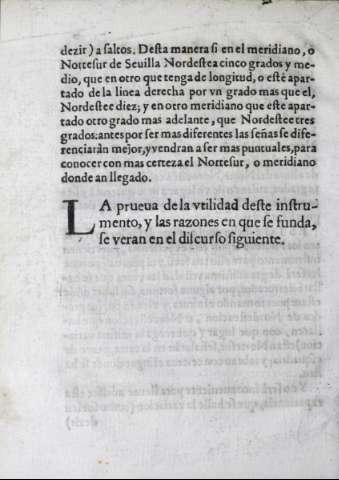 dezir) a saltos. Desta manera si en el meridiano, o
Nortesur de Seuilla Nordestea cinco grados y me-
dio, que en otro que tenga de longitud, o esté apar-
tado de la linea derecha por vn grado mas que el,
Nordestee diez; y en otro meridiano que este apar-
tado otro grado mas adelante, que Nordestee tres
grados: antes por ser mas diferentes las señas se dife-
renciaràn mejor, y vendran a ser mas puntuales, para
conocer con mas certeza el Nortesur, o meridiano
donde an llegado.
LA prueua de la vtilidad deste instru-
mento, y las razones en que se funda,
se veran en el discurso siguiente.